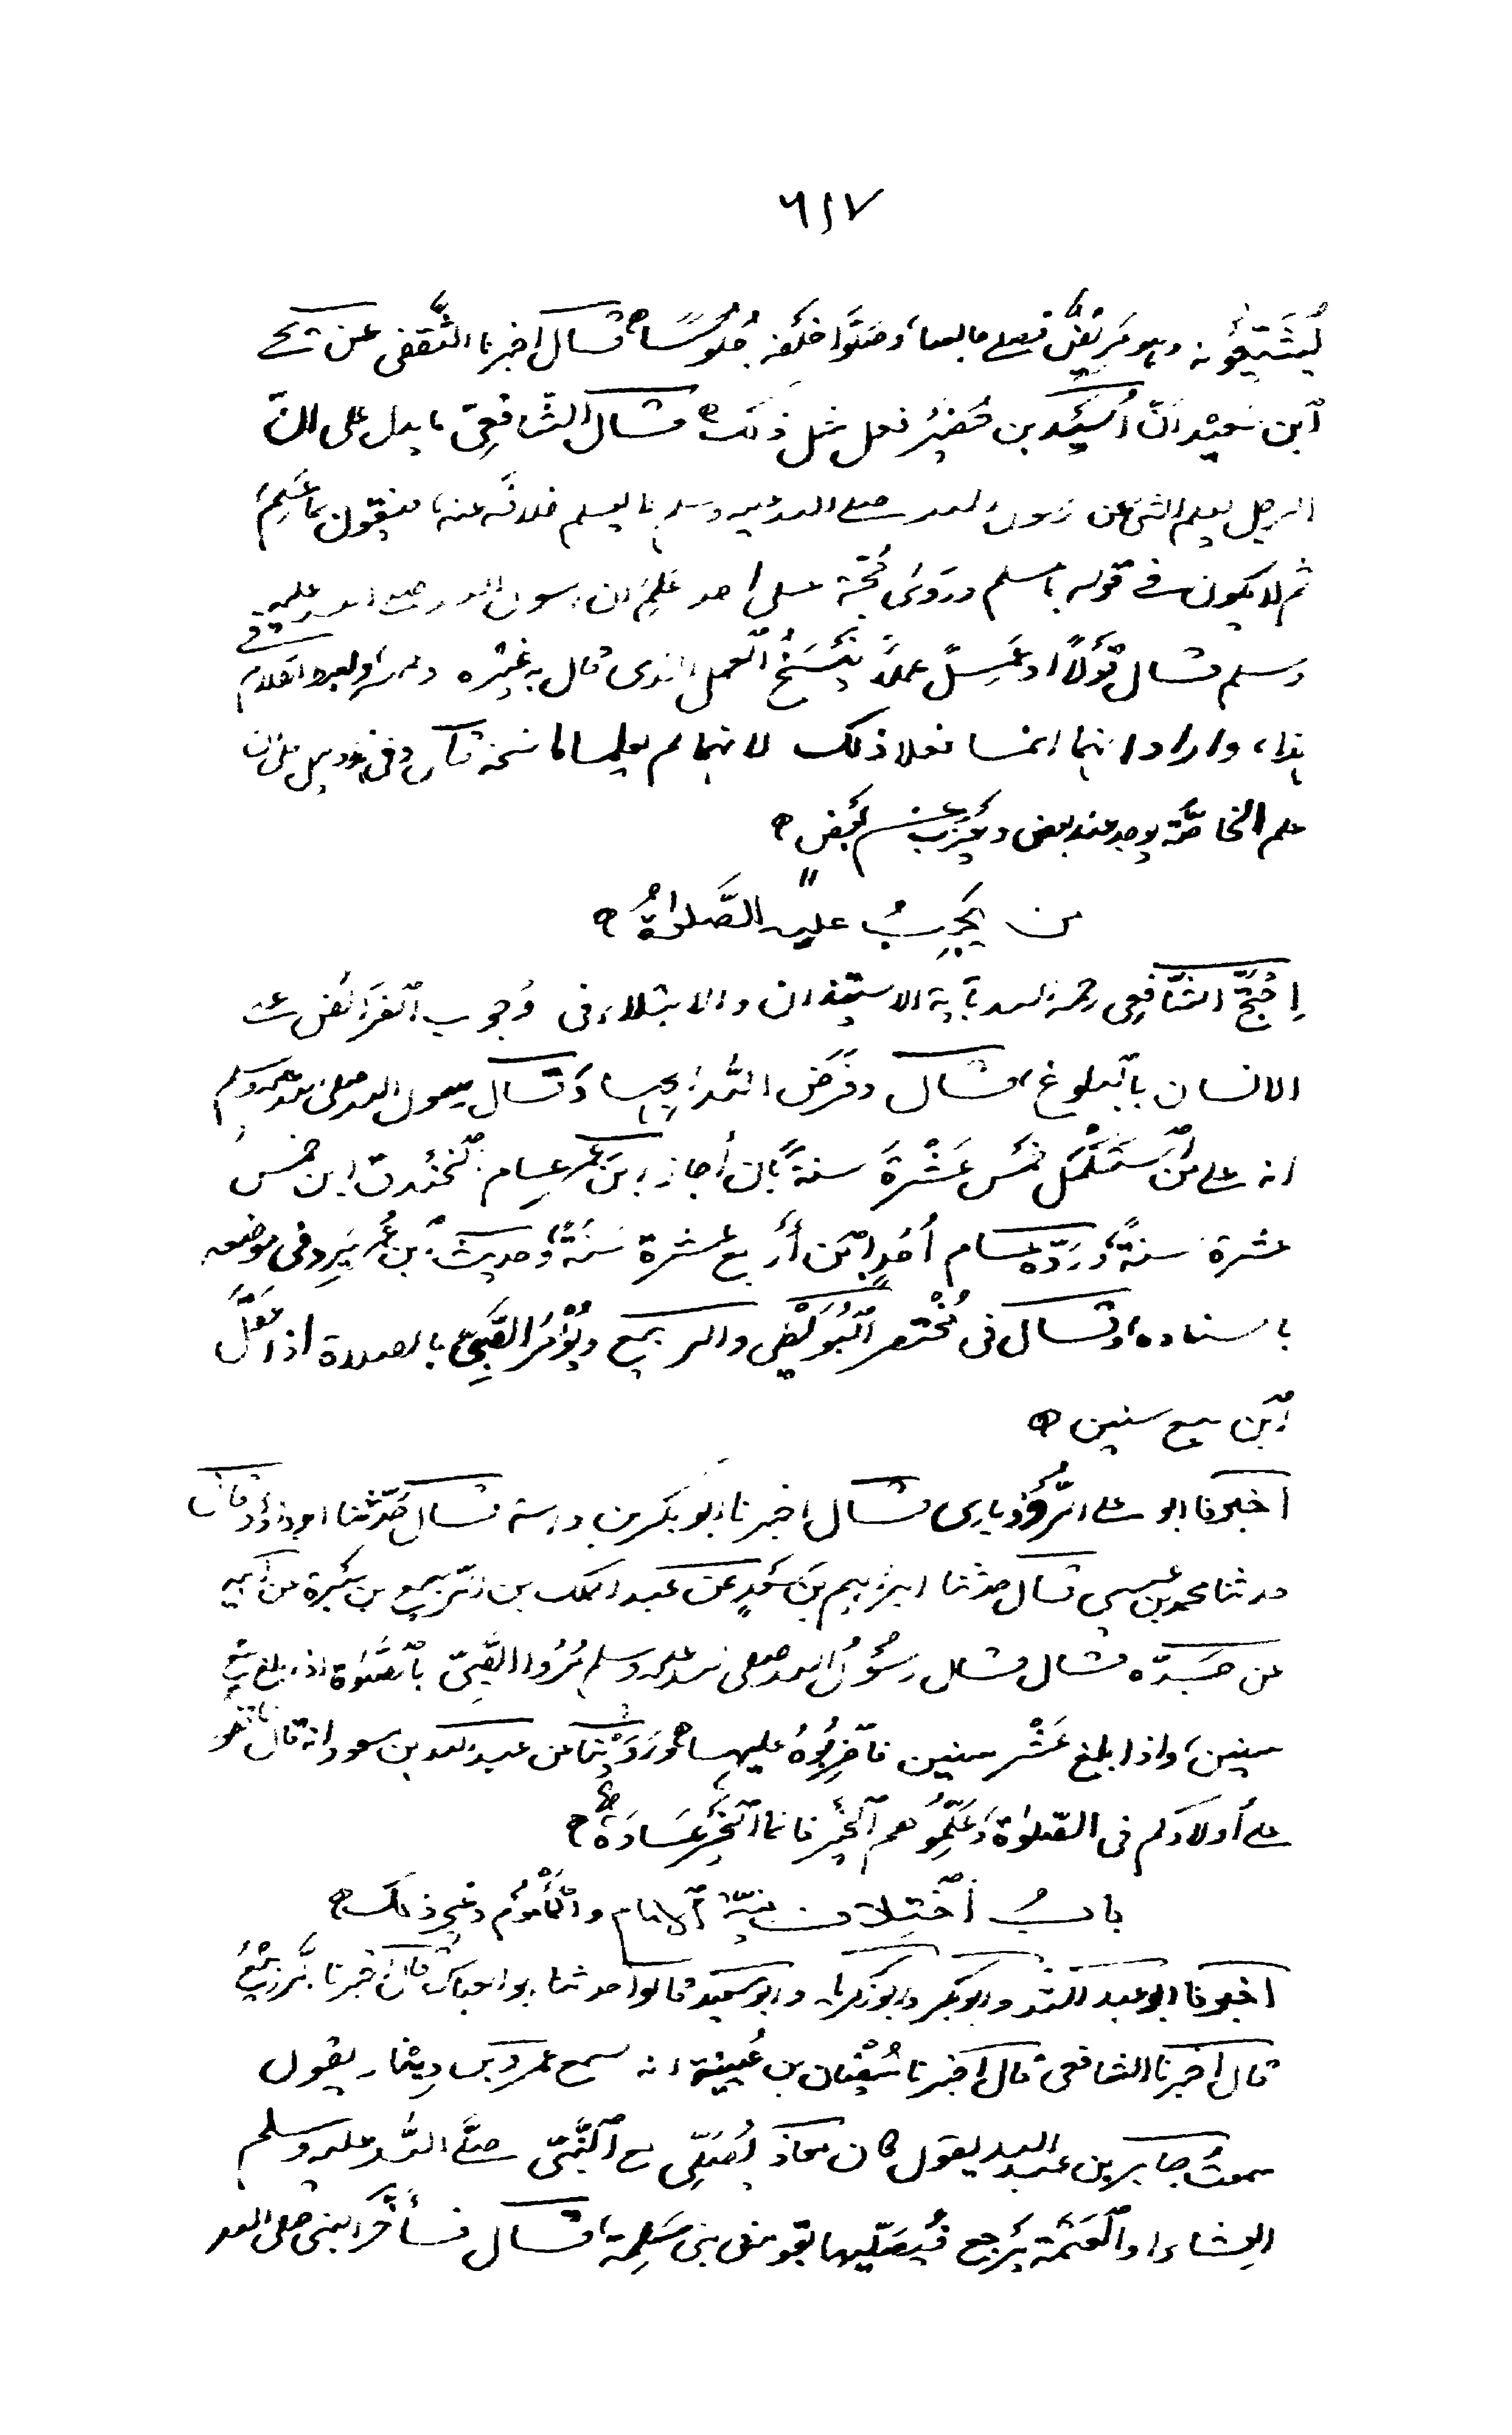 ٦١٧
يُشَيِّعُونه وهو مَرِيْضٌ فصلى جالسا، وصَلَّوا خَلْفَه جُلُوْسًا قال اخبرنا الثَّقفى عن يحيى
ابن سَعِيْد انّ اُسَيْد بن حُضَيْر فعل مثل ذلك قال الشَّافِعِىّ ما يدل على انّ
الرجل يعلم الشئ عن رسول الله صلى الله عليه وسلم لا يعلم خلافَه عنه، فيقول بما عَلِمَ
ثم لا يكون فى قوله بما علم وروَى حُجّة على احد عَلِمَ ان رسول الله صلى الله عليه
وسلم قال قَوْلًا او عَمِلَ عملاً يَنْسَخُ العمل الذى قال به غيْره
هذا، وارادا انهما انما فعلا ذلك لانهما لم يعلما ناسخه قال وفى هذا دليل على ان
علم الخاصَّة يوجد عند بعض ويَعْزُب عن بَعْض
من يَجِبُ عليه الصَّلٰوةُ
اِحْتَجَّ الشَّافِعِى رحمه الله بآية الاستيذان والابتلاء فى وُجوب الفَرَائض على
الانسان بالبلوغ، قال وفَرَضَ اللّٰه الجهاد وقال رسول الله صلى الله عليه وسلم
انه على من اسْتَكْمَل خمْسَ عَشْرَةَ سنةً بان اجاز ابن عُمَر عام الخَنْدق ابن خمْسَ
عشرة سنةً، ورَدّه عام اُحُدٍ ابْن أرْبع عشرة سَنَةً، وحديث ابن عُمَر يَرِد فى موضعه
باسناده، وقال فى مُخْتصَر البُوَيْطِى والربيع ويُؤْمَر الصَّبِىّ بالصلاة اذا عَقَلَ
ابْن سبع سنين
اخبرنا ابو على الرُّوْذبارى قال اخبرنا ابو بكر بن داسة قال حَدّثنا ابوداؤد قال
حدثنا محمد بن عيسى قال حدثنا ابراهيم بن سَعْدٍ عن عبد الملك بن الرَّبيع بن سَبْرة عن اَبِيه
عن جَدّه قال قال رسُوْلُ الله صلى الله عليه وسلم مُرُوا الصَّبِىَّ بالصَّلٰوة اذا بلغ سَبْعَ
سنين، واذا بلغ عَشْر سنين فاضْرِبُوْهُ عليها ورَوَيْنَا عن عبد الله بن مسعود انه قال حافظوا
على أولادكم فى الصّلٰوة وَعَلِّمُوْهم الخَيْر فانما الخَيْر عَادَةٌ
بابُ اخْتِلاف نِيّةِ الامام والمَأْمُوْم وغير ذلك
اخبرنا ابو عبد اللّٰه وابو بكر وابو زكريا، وابو سعيد قالوا حدثنا ابو العباس قال اخبرنا الرَّبِيْعُ
قال اخبرنا الشافعى قال اخبرنا سُفْيَان بن عُيينة انه سمع عمرو بن دِيْنار يقول
سمعتُ جابر بن عبد الله يقول كان معاذ يُصَلِّى مع النَّبِىّ صلَّى اللّٰه عليه وسلم
العِشاء او العَتَمَة ثم يَرْجع فيُصَلِّيها بقومه فى بنى سَلِمة، قال فأَخَّر النبى صلى الله